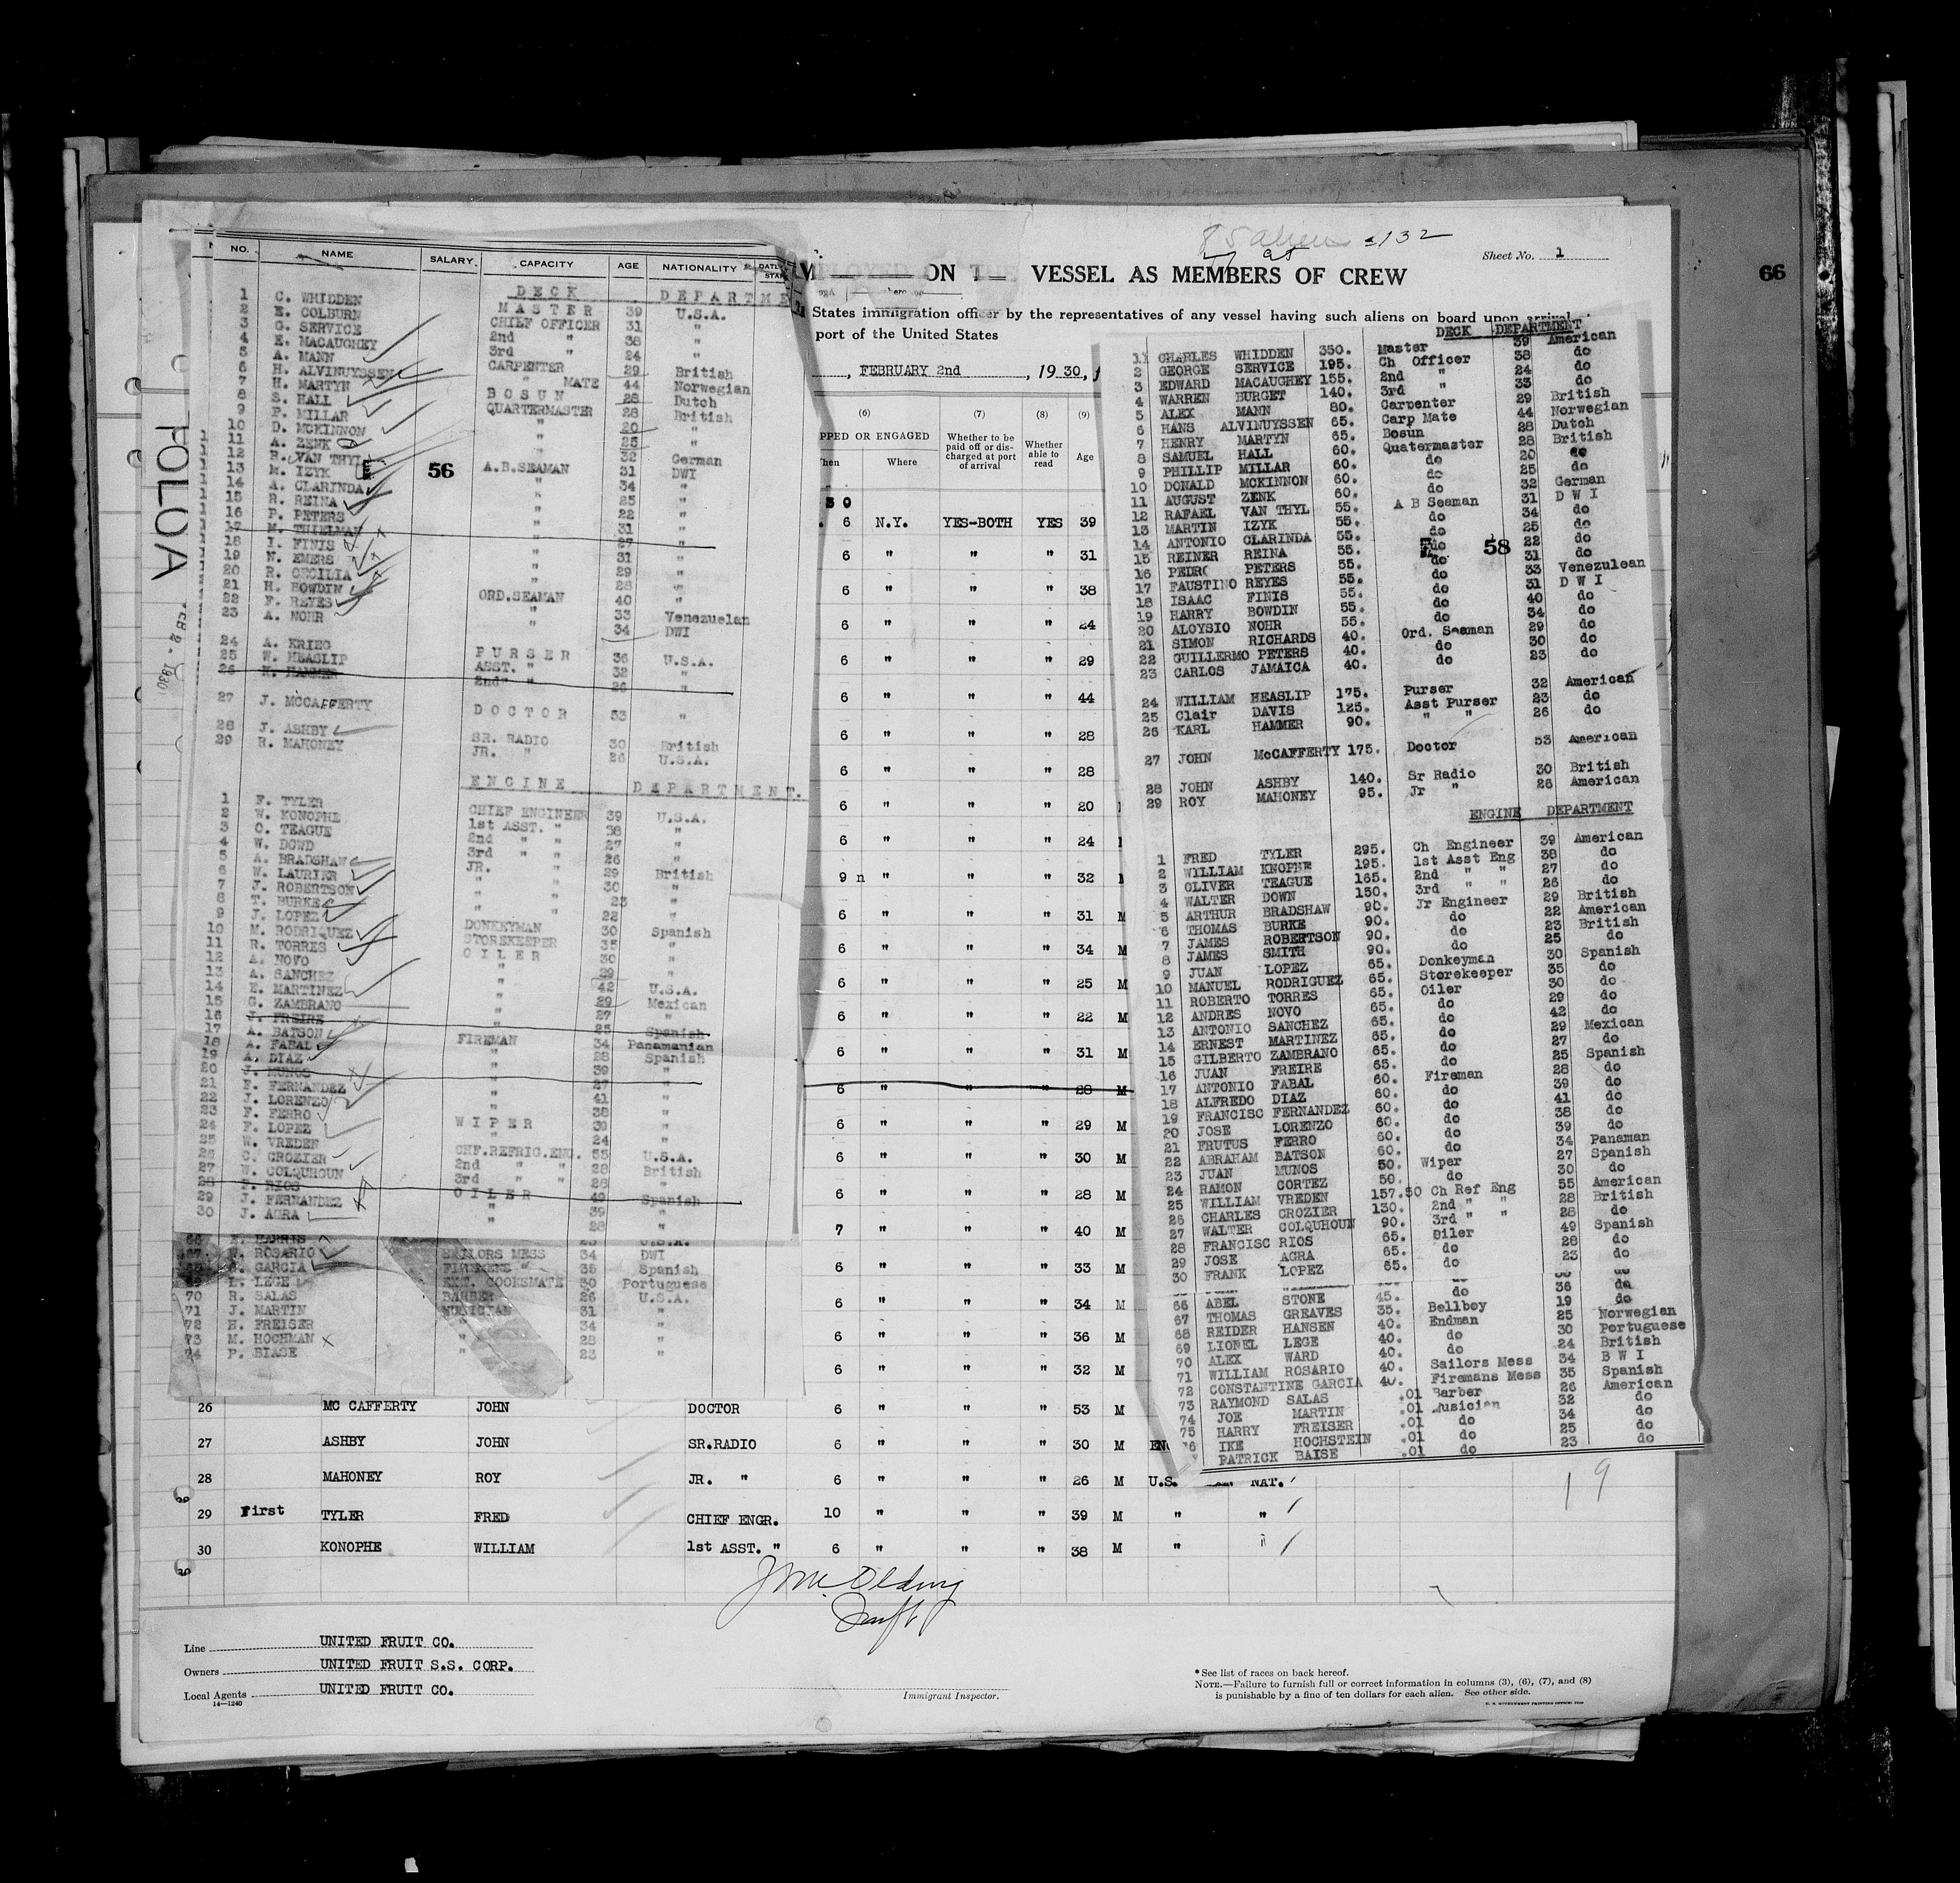 85 aliens 132
Sheet No. 1
ON VESSEL AS MEMBERS OF CREW
66
States immigration officer by the representatives of any vessel having such aliens on board upon arrival
port of the United States
, FEBRUARY 2nd , 19 30,
TOLOA
FEB 2 - 1930
NO. NAME SALARY. CAPACITY AGE NATIONALITY
DECK DEPARTME
1 C. WHIDDEN MASTER 39 U.S.A.
2 E. COLBURN CHIEF OFFICER 31 "
3 G. SERVICE 2nd " 38 "
4 E. MACAUGHEY 3rd " 24 "
5 A. MANN CARPENTER 29 British
6 H. ALVINUYSSEN " MATE 44 Norwegian
7 H. MARTYN BOSUN 28 Dutch
8 S. HALL QUARTERMASTER 28 British
9 P. MILLAR " 20 "
10 D. MCKINNON " 25 "
11 A. ZENK " 32 German
12 R. VAN THYL A.B.SEAMAN 31 DWI
13 M. IZYK " 34 "
56
14 A. CLARINDA " 25 "
15 R. REINA " 22 "
16 P. PETERS " 31 "
17 M. THIELMAN " 27 "
18 I. FINIS " 31 "
19 N. EMERS " 29 "
20 R. CECILIA " 28 "
21 H. BOWDIN ORD.SEAMAN 40 "
22 F. REYES " 33 Venezuelan
23 A. NOHR " 34 DWI
24 A. KRIEG PURSER 36 U.S.A.
25 W. HEASLIP ASST. " 32 "
26 K. HAMMER 2nd " " 26 "
27 J. MCCAFFERTY DOCTOR 53 "
28 J. ASHBY SR. RADIO 30 British
29 R. MAHONEY JR. " 26 U.S.A.
ENGINE DEPARTMENT.
1 F. TYLER CHIEF ENGINEER 39 U.S.A.
2 W. KONOPHE 1st ASST. " 38 "
3 O. TEAGUE 2nd " " 27 "
4 W. DOWD 3rd " " 26 "
5 A. BRADSHAW JR. " 29 British
6 W. LAURIER " " 30 "
7 J. ROBERTSON " " 23 "
8 T. BURKE " " 22 "
9 J. LOPEZ DONKEYMAN 30 Spanish
10 M. RODRIQUEZ STOREKEEPER 35 "
11 R. TORRES OILER 30 "
12 A. NOVO " 29 "
13 A. SANCHEZ " 42 U.S.A.
14 E. MARTINEZ " 29 Mexican
15 G. ZAMBRANO " 27 "
16 J. FREIRE " 25 Spanish
17 A. BATSON FIREMAN 34 Panamanian
18 A. FABAL " 28 Spanish
19 A. DIAZ " 39 "
20 J. MUNOS " 27 "
21 F. FERNANDEZ " 41 "
22 J. LORENZO " 38 "
23 F. FERRO WIPER 39 "
24 F. LOPEZ " 24 "
25 W. VREDEN CHF.REFRIG.ENG. 55 U.S.A.
26 C. CROZIER 2nd " " 28 British
27 W. COLQUHOUN 3rd " " 28 "
28 F. RIOS OILER 49 Spanish
29 J. FERNANDEZ " 39 "
30 J. AGRA " 28 "
66 HARRIS U.S.A.
67 W. ROSARIO SAILORS MESS 34 DWI
GARCIA FIREMENS " 35 Spanish
L. LEGE EXT. COOKSMATE 30 Portuguese
70 R. SALAS BARBER 26 U.S.A.
71 J. MARTIN MUSICIAN 31 "
72 H. FREISER " 34 "
73 M. HOCHMAN " 28 "
74 P. BIASE " 23 "
(6) (7) (8) (9)
PPED OR ENGAGED
hen Where Whether to be paid off or discharged at port of arrival Whether able to read Age
30
6 N.Y. YES-BOTH YES 39
6 " " " 31
6 " " " 38
6 " " " 24
6 " " " 29
6 " " " 44
6 " " " 28
6 " " " 28
6 " " " 20
6 " " " 24
9 n " " " 32
6 " " " 31 M
6 " " " 34 M
6 " " " 25 M
6 " " " 22 M
6 " " " 31 M
6 " " " 28 M
6 " " " 29 M
6 " " " 30 M
6 " " " 28 M
7 " " " 40 M
6 " " " 33 M
6 " " " 34 M
6 " " " 36 M
6 " " " 32 M
DECK DEPARTMENT
1 CHARLES WHIDDEN 350. Master 39 American
2 GEORGE SERVICE 195. Ch Officer 38 do
3 EDWARD MACAUGHEY 155. 2nd " 24 do
4 WARREN BURGET 140. 3rd " 33 do
5 ALEX MANN 80. Carpenter 29 British
6 HANS ALVINUYSSEN 65. Carp Mate 44 Norwegian
7 HENRY MARTYN 65. Bosun 28 Dutch
8 SAMUEL HALL 60. Quatermaster 28 British
9 PHILLIP MILLAR 60. do 20 do
10 DONALD MCKINNON 60. do 25 do
11 AUGUST ZENK 60. do 32 German
12 RAFAEL VAN THYL 55. A B Seaman 31 D W I
13 MARTIN IZYK 55. do 34 do
14 ANTONIO CLARINDA 55. do 25 do
15 REINER REINA 55. do 22 do
58
16 PEDRO PETERS 55. do 31 do
17 FAUSTINO REYES 55. do 33 Venezulean
18 ISAAC FINIS 55. do 31 D W I
19 HARRY BOWDIN 55. do 40 do
20 ALOYSIO NOHR 55. do 34 do
21 SIMON RICHARDS 40. Ord. Seaman 29 do
22 GUILLERMO PETERS 40. do 30 do
23 CARLOS JAMAICA 40. do 23 do
24 WILLIAM HEASLIP 175. Purser 32 American
25 Clair DAVIS 125. Asst Purser 23 do
26 KARL HAMMER 90. " " 26 do
27 JOHN McCAFFERTY 175. Doctor 53 American
28 JOHN ASHBY 140. Sr Radio 30 British
29 ROY MAHONEY 95. Jr " 26 American
ENGINE DEPARTMENT
1 FRED TYLER 295. Ch Engineer 39 American
2 WILLIAM KNOPHE 195. 1st Asst Eng 38 do
3 OLIVER TEAGUE 165. 2nd " " 27 do
4 WALTER DOWN 150. 3rd " " 26 do
5 ARTHUR BRADSHAW 90. Jr Engineer 29 British
6 THOMAS BURKE 90. do 22 American
7 JAMES ROBERTSON 90. do 23 British
8 JAMES SMITH 90. do 25 do
9 JUAN LOPEZ 65. Donkeyman 30 Spanish
10 MANUEL RODRIGUEZ 65. Storekeeper 35 do
11 ROBERTO TORRES 65. Oiler 30 do
12 ANDRES NOVO 65. do 29 do
13 ANTONIO SANCHEZ 65. do 42 do
14 ERNEST MARTINEZ 65. do 29 Mexican
15 GILBERTO ZAMBRANO 65. do 27 do
16 JUAN FREIRE 65. do 25 Spanish
17 ANTONIO FABAL 60. Fireman 28 do
18 ALFREDO DIAZ 60. do 39 do
19 FRANCISC FERNANDEZ 60. do 41 do
20 JOSE LORENZO 60. do 38 do
21 FRUTUS FERRO 60. do 39 do
22 ABRAHAM BATSON 60. do 34 Panaman
23 JUAN MUNOS 50. Wiper 27 Spanish
24 RAMON CORTEZ 50. do 30 do
25 WILLIAM VREDEN 157.50 Ch Ref Eng 55 American
26 CHARLES CROZIER 130. 2nd " " 28 British
27 WALTER COLQUHOUN 90. 3rd " " 28 do
28 FRANCISC RIOS 65. Oiler 49 Spanish
29 JOSE AGRA 65. do 28 do
30 FRANK LOPEZ 65. do 23 do
66 ABEL STONE 45. do 36 do
67 THOMAS GREAVES 35. Bellboy 19 do
68 REIDER HANSEN 40. Endman 25 Norwegian
69 LIONEL LEGE 40. do 30 Portuguese
70 ALEX WARD 40. do 24 British
71 WILLIAM ROSARIO 40. Sailors Mess 34 B W I
72 CONSTANTINE GARCIA 40. Firemans Mess 35 Spanish
73 RAYMOND SALAS .01 Barber 26 American
74 JOE MARTIN .01 Musician 32 do
75 HARRY FREISER .01 do 34 do
76 IKE HOCHSTEIN .01 do 25 do
PATRICK BAISE .01 do 23 do
26 MC CAFFERTY JOHN DOCTOR 6 " " " 53 M
27 ASHBY JOHN SR.RADIO 6 " " " 30 M ENG
28 MAHONEY ROY JR. " 6 " " " 26 M U.S. NAT.
29 First TYLER FRED CHIEF ENGR. 10 " " " 39 M " "
30 KONOPHE WILLIAM 1st ASST. " 6 " " " 38 M " "
19
Line UNITED FRUIT CO.
Owners UNITED FRUIT S.S. CORP.
Local Agents UNITED FRUIT CO.
14—1240
Immigrant Inspector.
* See list of races on back hereof.
NOTE.—Failure to furnish full or correct information in columns (3), (6), (7), and (8)
is punishable by a fine of ten dollars for each alien. See other side.